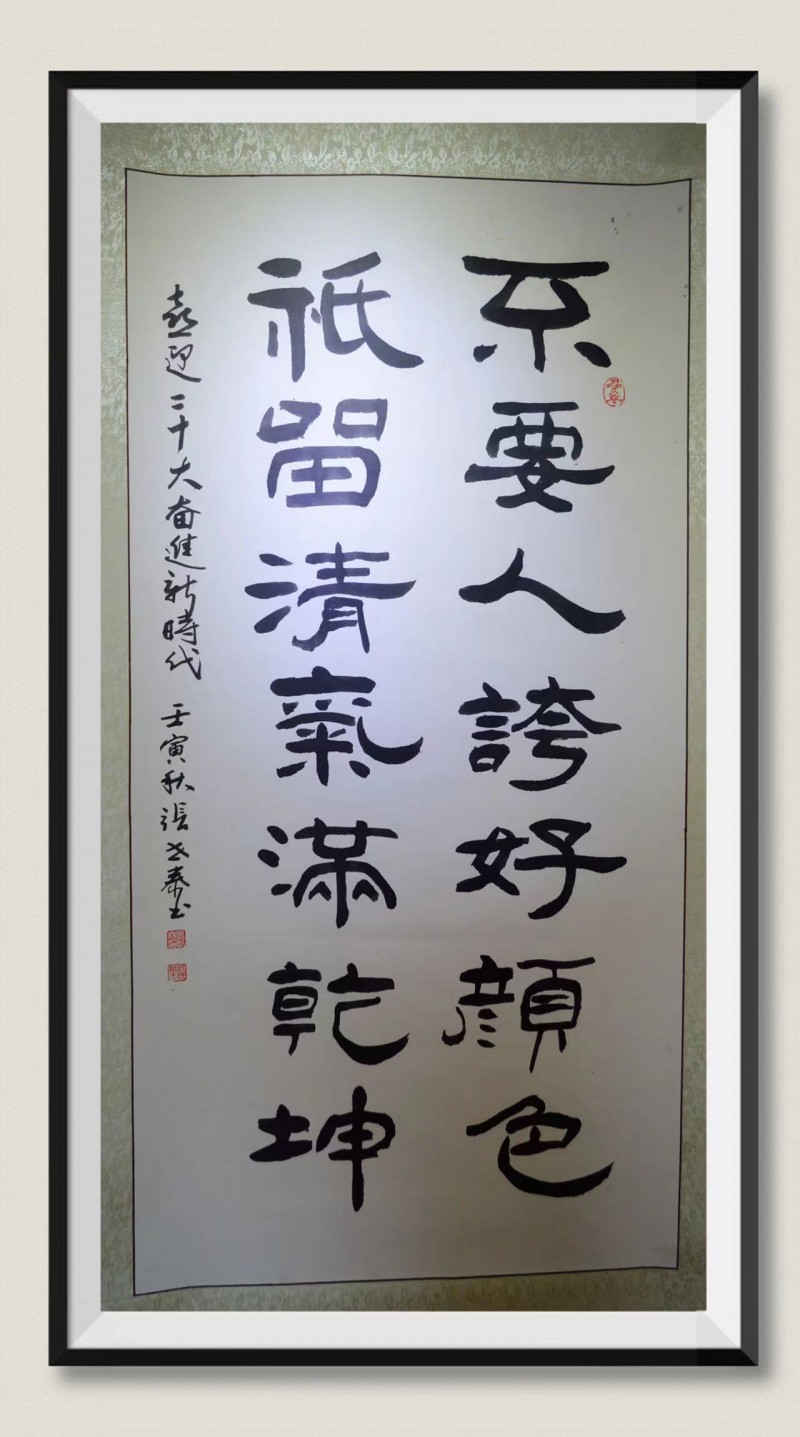 不要人誇好顔色
祇留清氣滿乾坤
喜迎二十大奋進新時代 壬寅秋張书